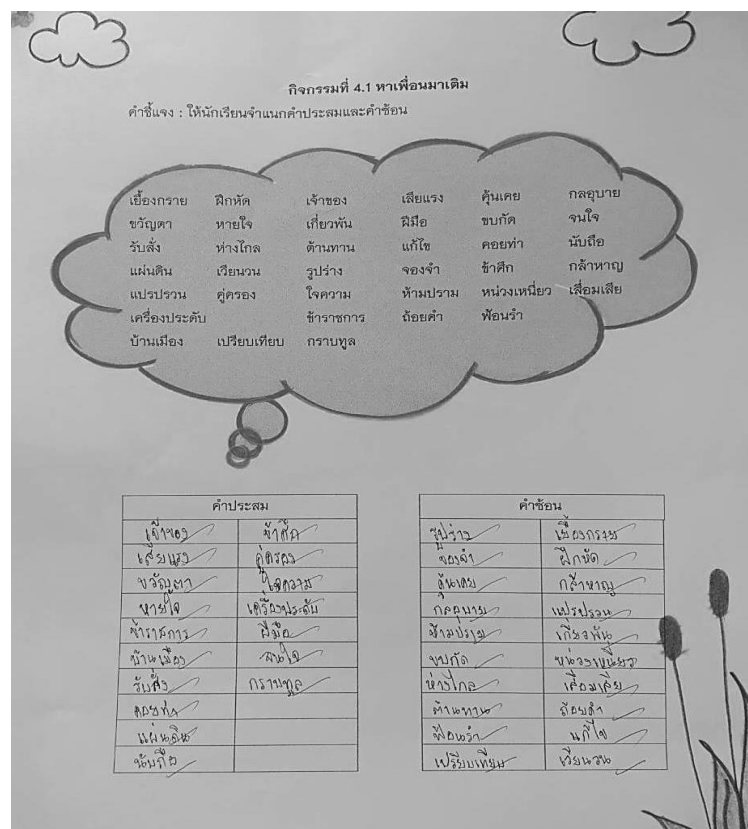 กิจกรรมที่ 4.1 หาเพื่อนมาเติม
คำชี้แจง : ให้นักเรียนจำแนกคำประสมและคำซ้อน
เยื้องกราย ฝึกหัด เจ้าของ เสียแรง คุ้นเคย กลอุบาย
ขวัญตา หายใจ เกี่ยวพัน ฝีมือ ขบกัด จนใจ
รับสั่ง ห่างไกล ต้านทาน แก้ไข คอยท่า นับถือ
แผ่นดิน เวียนวน รูปร่าง จองจำ ข้าศึก กล้าหาญ
แปรปรวน คู่ครอง ใจความ ห้ามปราม หน่วงเหนี่ยว เสื่อมเสีย
เครื่องประดับ ข้าราชการ ถ้อยคำ ฟ้อนรำ
บ้านเมือง เปรียบเทียบ กราบทูล
คำประสม
เจ้าของ ข้าศึก
เสียแรง คู่ครอง
ขวัญตา ใจความ
หายใจ เครื่องประดับ
ข้าราชการ ฝีมือ
บ้านเมือง จนใจ
รับสั่ง กราบทูล
คอยท่า
แผ่นดิน
นับถือ
คำซ้อน
รูปร่าง เยื้องกราย
จองจำ ฝึกหัด
คุ้นเคย กล้าหาญ
กลอุบาย แปรปรวน
ห้ามปราม เกี่ยวพัน
ขบกัด หน่วงเหนี่ยว
ห่างไกล เสื่อมเสีย
ต้านทาน ถ้อยคำ
ฟ้อนรำ แก้ไข
เปรียบเทียบ เวียนวน